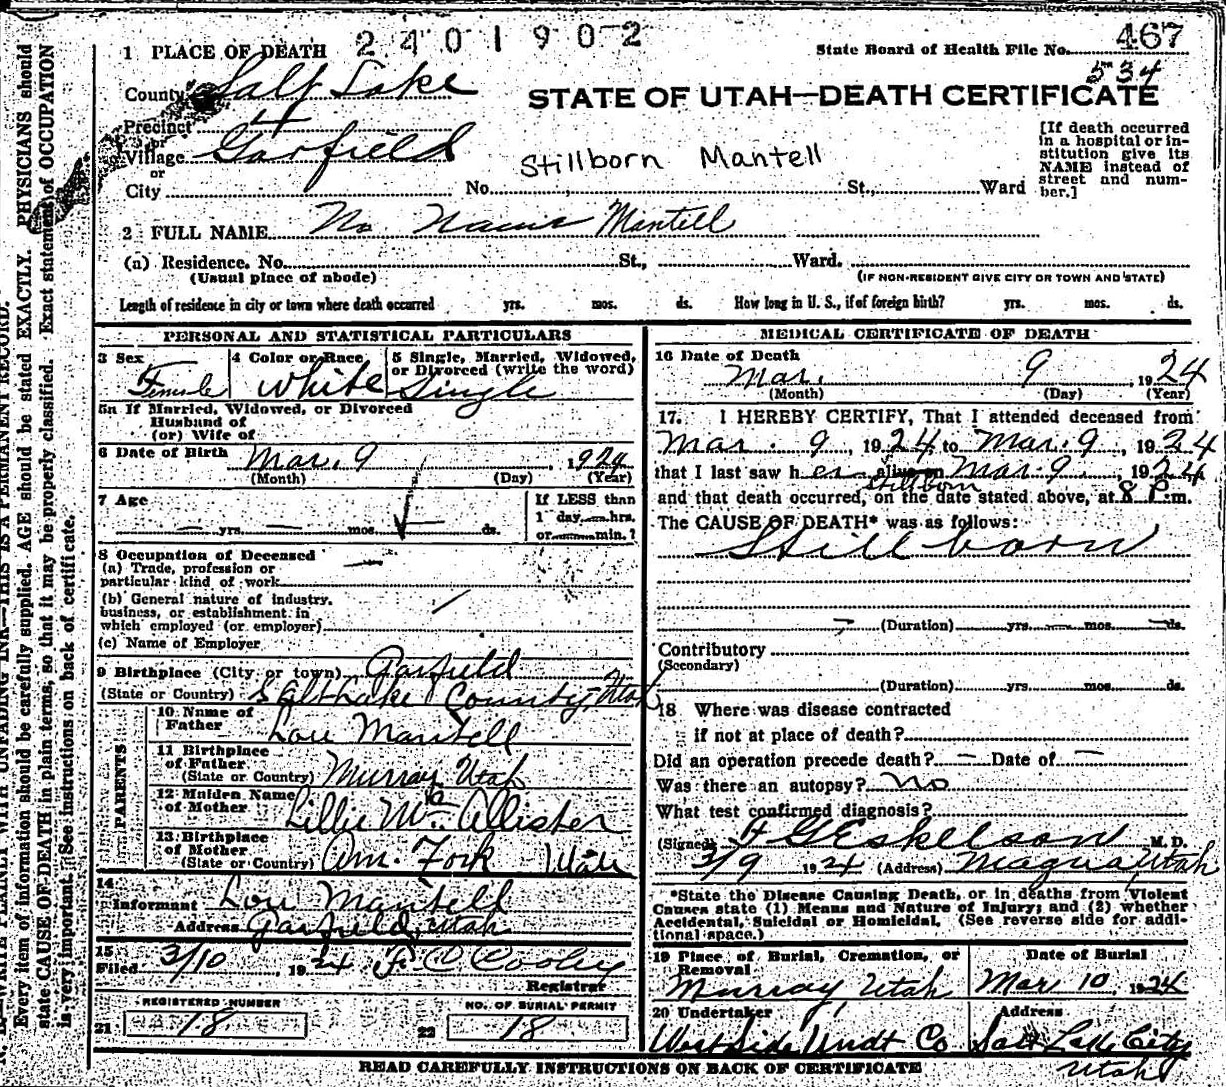 2401902
State Board of Health File No. 467
534
1 PLACE OF DEATH
County Salt Lake
STATE OF UTAH—DEATH CERTIFICATE
Precinct 4
or
Village Garfield
or
City No. St., Ward
Stillborn Mantell
[If death occurred
in a hospital or in-
stitution give its
NAME instead of
street and num-
ber.]
2 FULL NAME No Name Mantell
(a) Residence. No. St., Ward.
(Usual place of abode) (IF NON-RESIDENT GIVE CITY OR TOWN AND STATE)
Length of residence in city or town where death occurred yrs. mos. ds. How long in U. S., if of foreign birth? yrs. mos. ds.
PERSONAL AND STATISTICAL PARTICULARS
3 Sex Female
4 Color or Race White
5 Single, Married, Widowed,
or Divorced (write the word)
Single
5a If Married, Widowed, or Divorced
Husband of
(or) Wife of
6 Date of Birth Mar. 9, 1924
(Month) (Day) (Year)
7 Age
— yrs. — mos. — ds.
If LESS than
1 day, hrs.
or min.?
8 Occupation of Deceased
(a) Trade, profession or
particular kind of work
(b) General nature of industry,
business, or establishment in
which employed (or employer)
(c) Name of Employer
9 Birthplace (City or town) Garfield
(State or Country) Salt Lake County, Utah
PARENTS
10 Name of
Father Lou Mantell
11 Birthplace
of Father
(State or Country) Murray Utah
12 Maiden Name
of Mother Lillie McAllister
13 Birthplace
of Mother
(State or Country) Am. Fork Utah
14
Informant Lou Mantell
Address Garfield, Utah
15
Filed 3/10, 1924 F. C. Cooley
Registrar
REGISTERED NUMBER
21 18
NO. OF BURIAL PERMIT
22 18
MEDICAL CERTIFICATE OF DEATH
16 Date of Death
Mar. 9 1924
(Month) (Day) (Year)
17. I HEREBY CERTIFY, That I attended deceased from
Mar. 9, 1924, to Mar. 9, 1924
that I last saw her alive on Mar. 9 1924
stillborn
and that death occurred, on the date stated above, at 8 P. m.
The CAUSE OF DEATH* was as follows:
Stillborn
(Duration) yrs. mos. ds.
Contributory
(Secondary)
(Duration) yrs. mos. ds.
18 Where was disease contracted
if not at place of death?
Did an operation precede death? — Date of —
Was there an autopsy? No
What test confirmed diagnosis?
(Signed) F G Eskelson M. D.
3/9 1924 (Address) Magna Utah
*State the Disease Causing Death, or in deaths from Violent
Causes state (1) Means and Nature of Injury; and (2) whether
Accidental, Suicidal or Homicidal. (See reverse side for addi-
tional space.)
19 Place of Burial, Cremation, or
Removal
Murray, Utah
Date of Burial
Mar. 10, 1924
20 Undertaker
West Side Undt Co
Address
Salt Lake City
Utah
READ CAREFULLY INSTRUCTIONS ON BACK OF CERTIFICATE
WRITE PLAINLY WITH UNFADING INK—THIS IS A PERMANENT RECORD.
Every item of information should be carefully supplied. AGE should be stated EXACTLY. PHYSICIANS should
state CAUSE OF DEATH in plain terms, so that it may be properly classified. Exact statement of OCCUPATION
is very important. (See instructions on back of certificate.